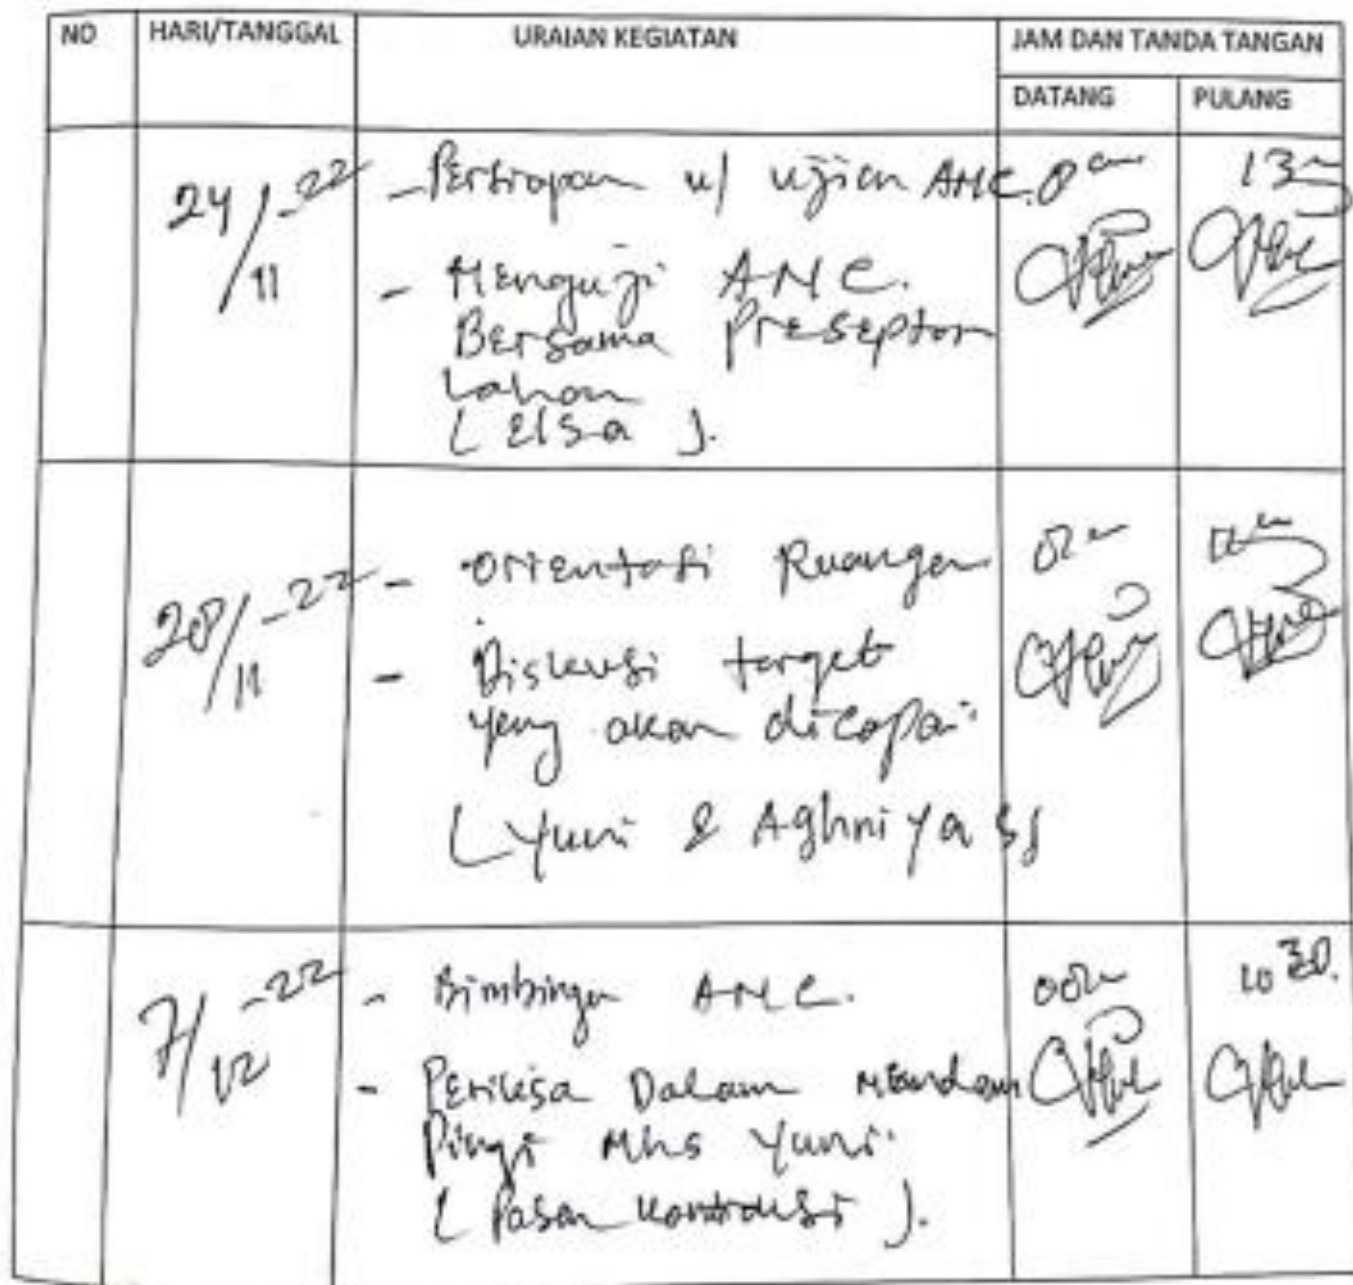 NO HARI/TANGGAL URAIAN KEGIATAN JAM DAN TANDA TANGAN
DATANG PULANG
24/11-22 - Persiapan u/ ujian ANC.
- Menguji ANC.
Bersama Preseptor
Lahan
( Elsa ).
28/11-22 - Orientasi Ruangan
- Diskusi target
yang akan dicapai
( Yuni & Aghniya
7/12-22 - Bimbingan ANC. 10 30.
- Periksa Dalam Mendam
Pingi Mhs Yuni.
( Pasen Kontraksi ).